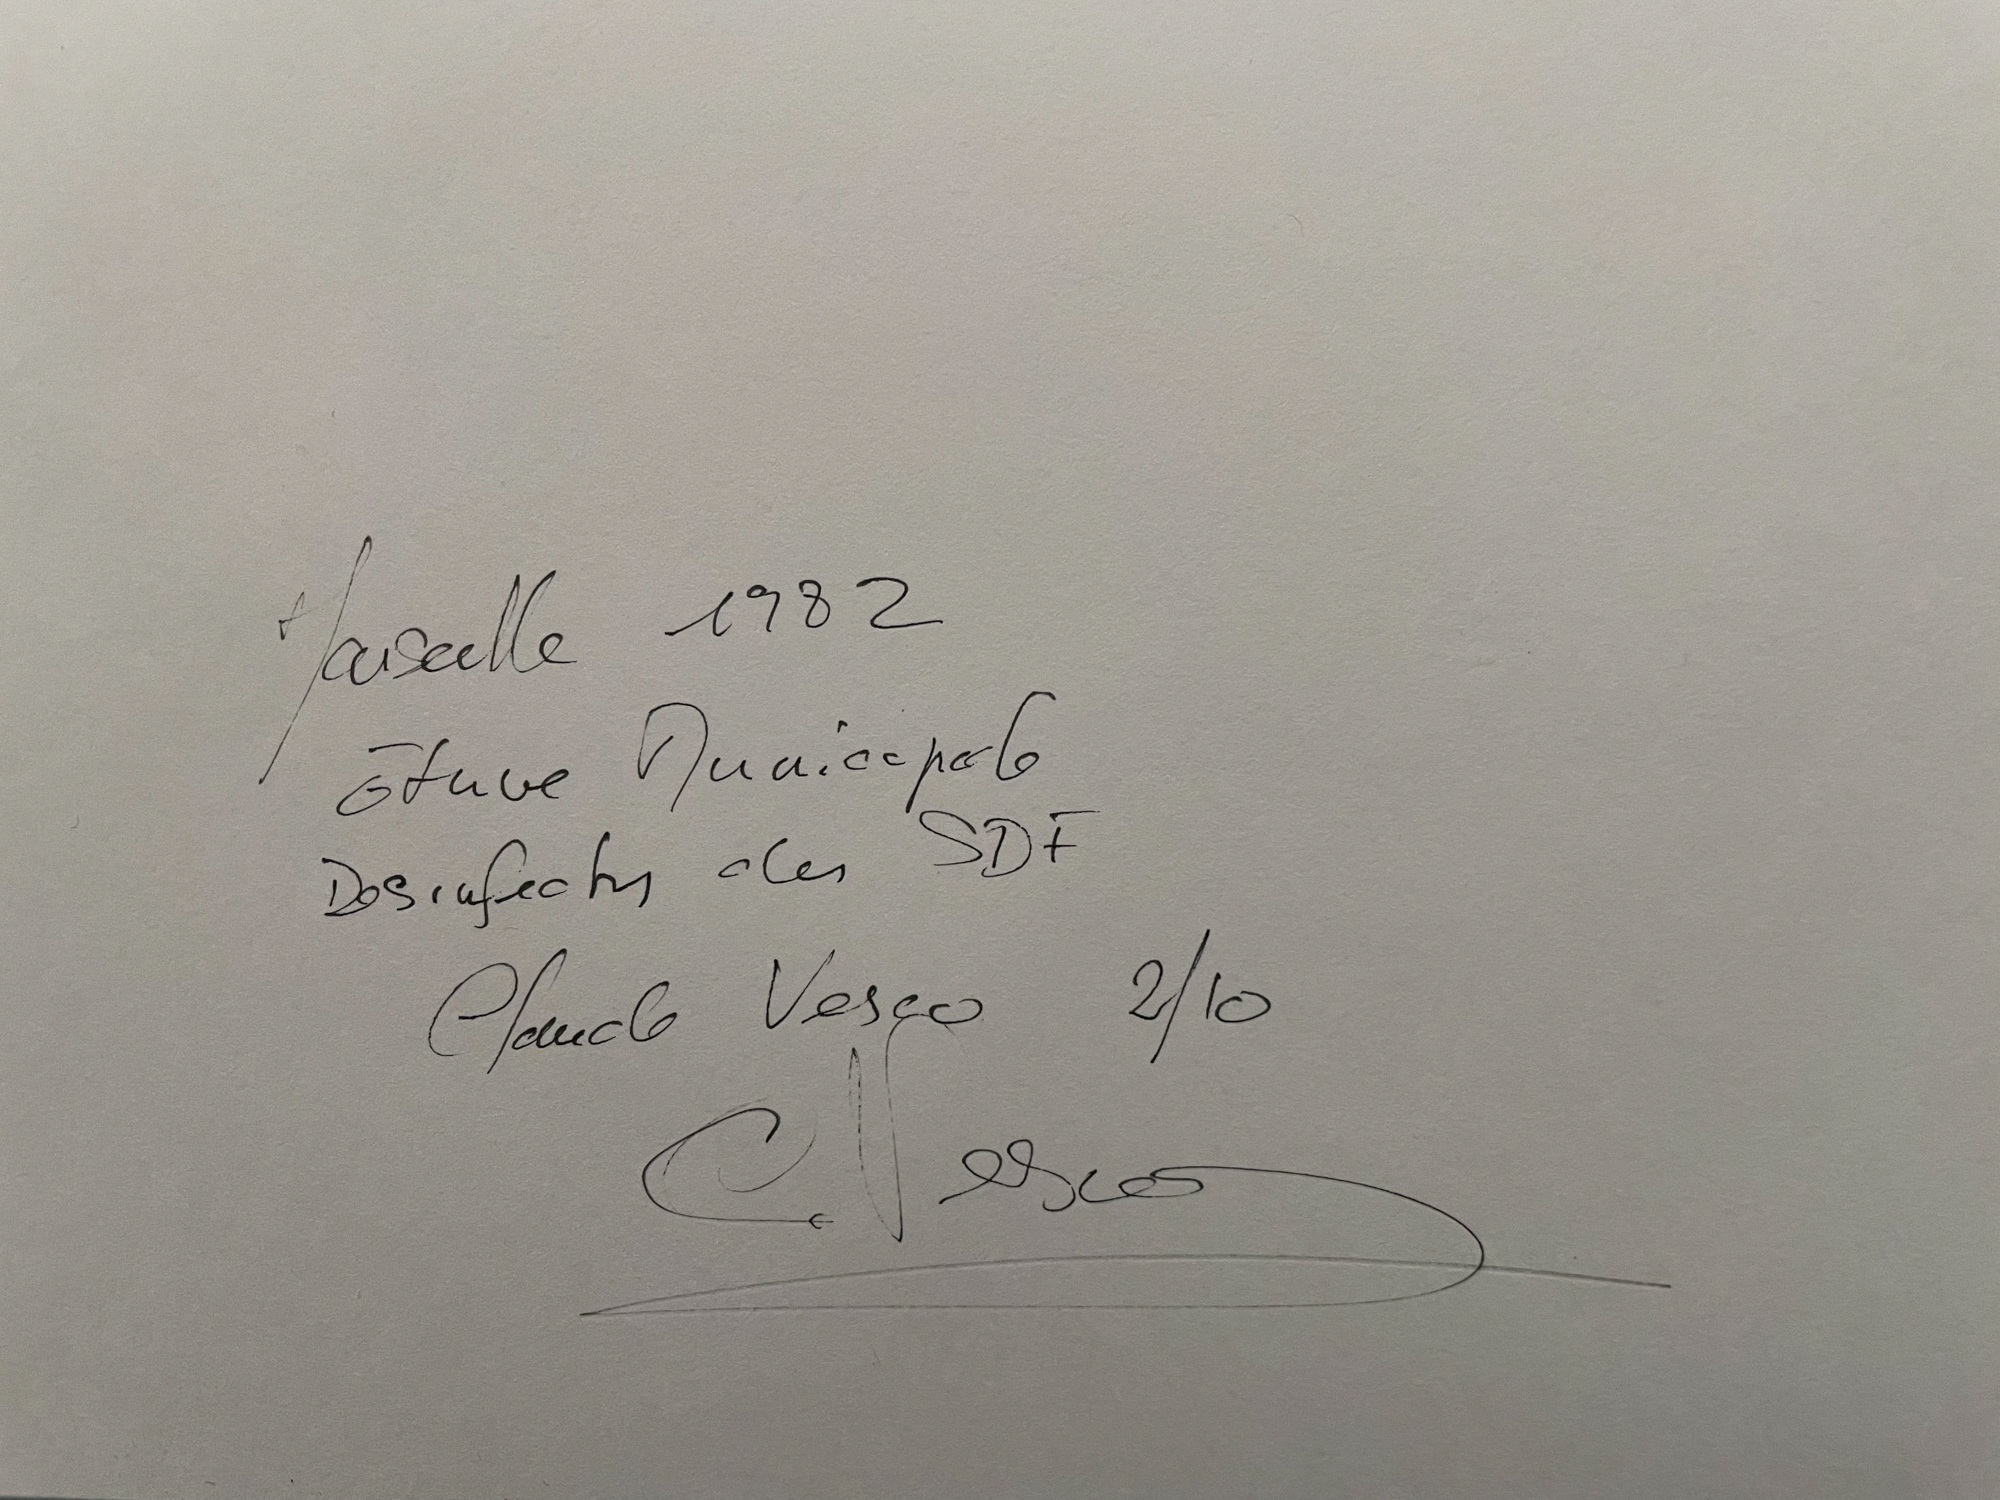 Marseille 1982
étuve Municipale
Desinfection des SDF
Claude Vesco 2/10
C. Vesco